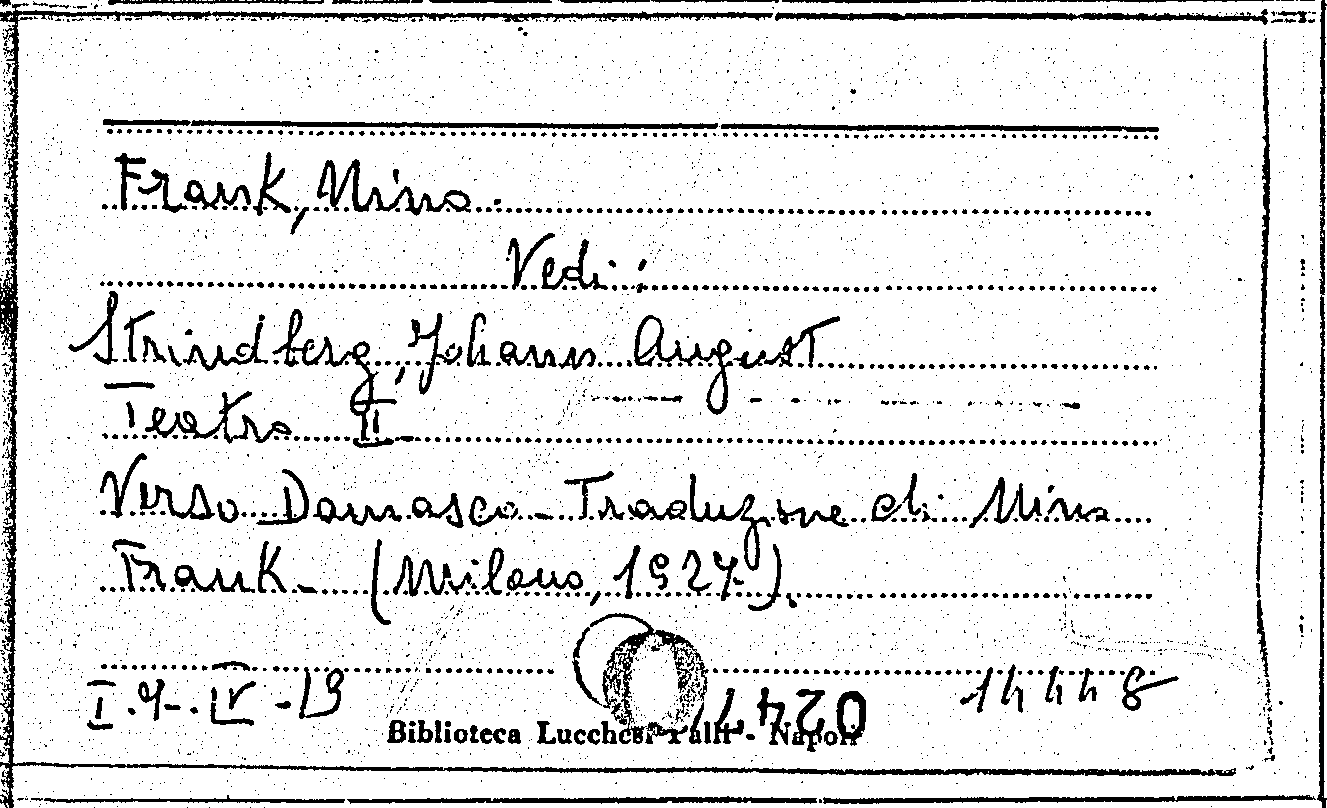 Frank, Nino.
Vedi:
Strindberg, Johann August
Teatro II
Verso Damasco - Traduzione di Nino
Frank - (Milano, 1927).
14448
Biblioteca Lucchesi Palli - Napoli